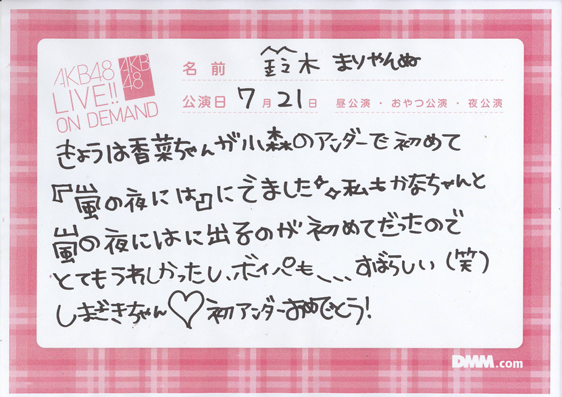 AKB48
LIVE!!
ON DEMAND
AKB
48
名前 鈴木まりやんぬ
公演日 7月21日 昼公演・おやつ公演・夜公演
きょうは香菜ちゃんが小森のアンダーで初めて
『嵐の夜には』にでました✨私もかなちゃんと
嵐の夜にはに出るのが初めてだったので
とてもうれしかったし、ボイパも、、、すばらしい(笑)
しまざきちゃん♡初アンダーおめでとう!
DMM.com